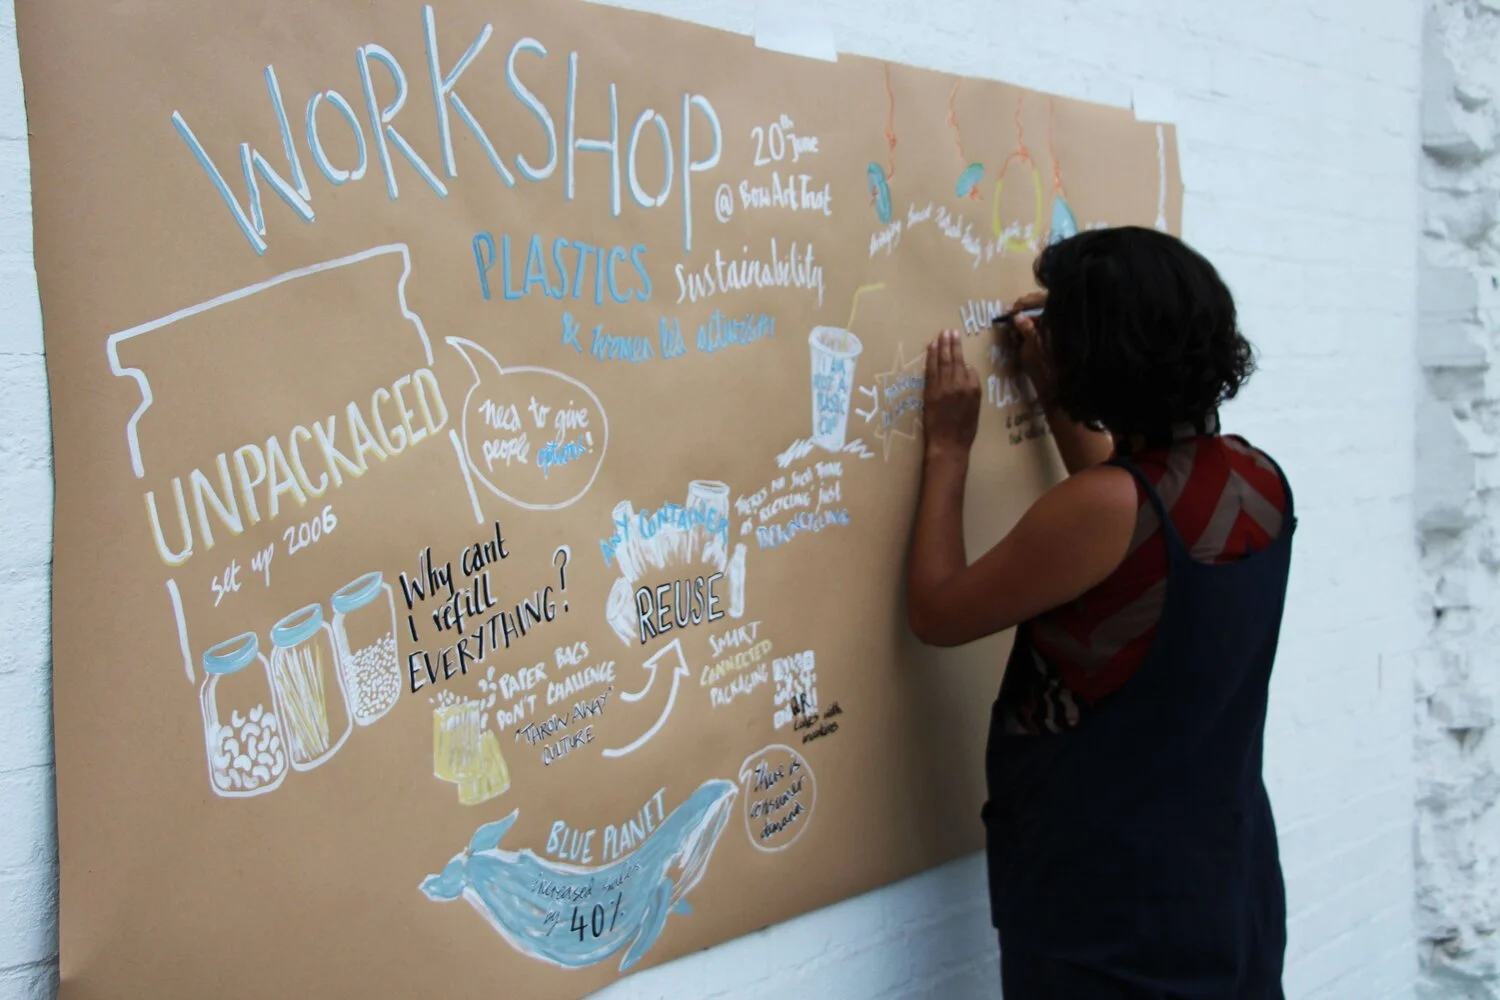 WORKSHOP
20th June
@ Bow Art Trust
PLASTICS Sustainability
& women led activism
HUM
UNPACKAGED
set up 2006
need to give
people options!
I AM
NOT A
PLASTIC
CUP
ANY CONTAINER
REUSE
THERE'S NO SUCH THING
AS 'RECYCLING' just
DOWNCYCLING
Why cant
I refill
EVERYTHING?
PAPER BAGS
DON'T CHALLENGE
"THROW AWAY"
CULTURE
SMART
CONNECTED
PACKAGING
QR
codes with
There is
consumer
demand
BLUE PLANET
increased sales
by 40%